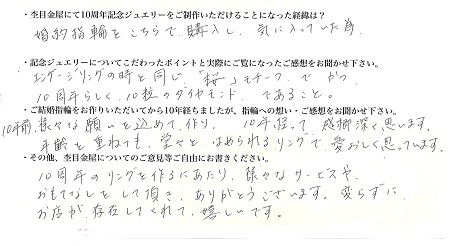 ・杢目金屋にて10周年記念ジュエリーをご制作いただけることになった経緯は？
婚約指輪をこちらで購入し、気に入っていた為
・記念ジュエリーについてこだわったポイントと実際にご覧になったご感想をお聞かせ下さい。
エンゲージリングの時と同じ「桜」モチーフでかつ
10周年らしく、10粒のダイヤモンド、であること。
・ご結婚指輪をお作りいただいてから10年経ちましたが、指輪への想い・ご感想をお聞かせ下さい。
10年前、様々な願いを込めて作り、10年経って感慨深く思います。
年齢を重ねても、堂々とはめられるリングで、愛おしく思っています。
・その他、杢目金屋についてのご意見等ご自由にお書きください。
10周年のリングを作るにあたり、様々なサービスや
おもてなしをして頂き、ありがとうございます。変らずに
お店が存在してくれて、嬉しいです。